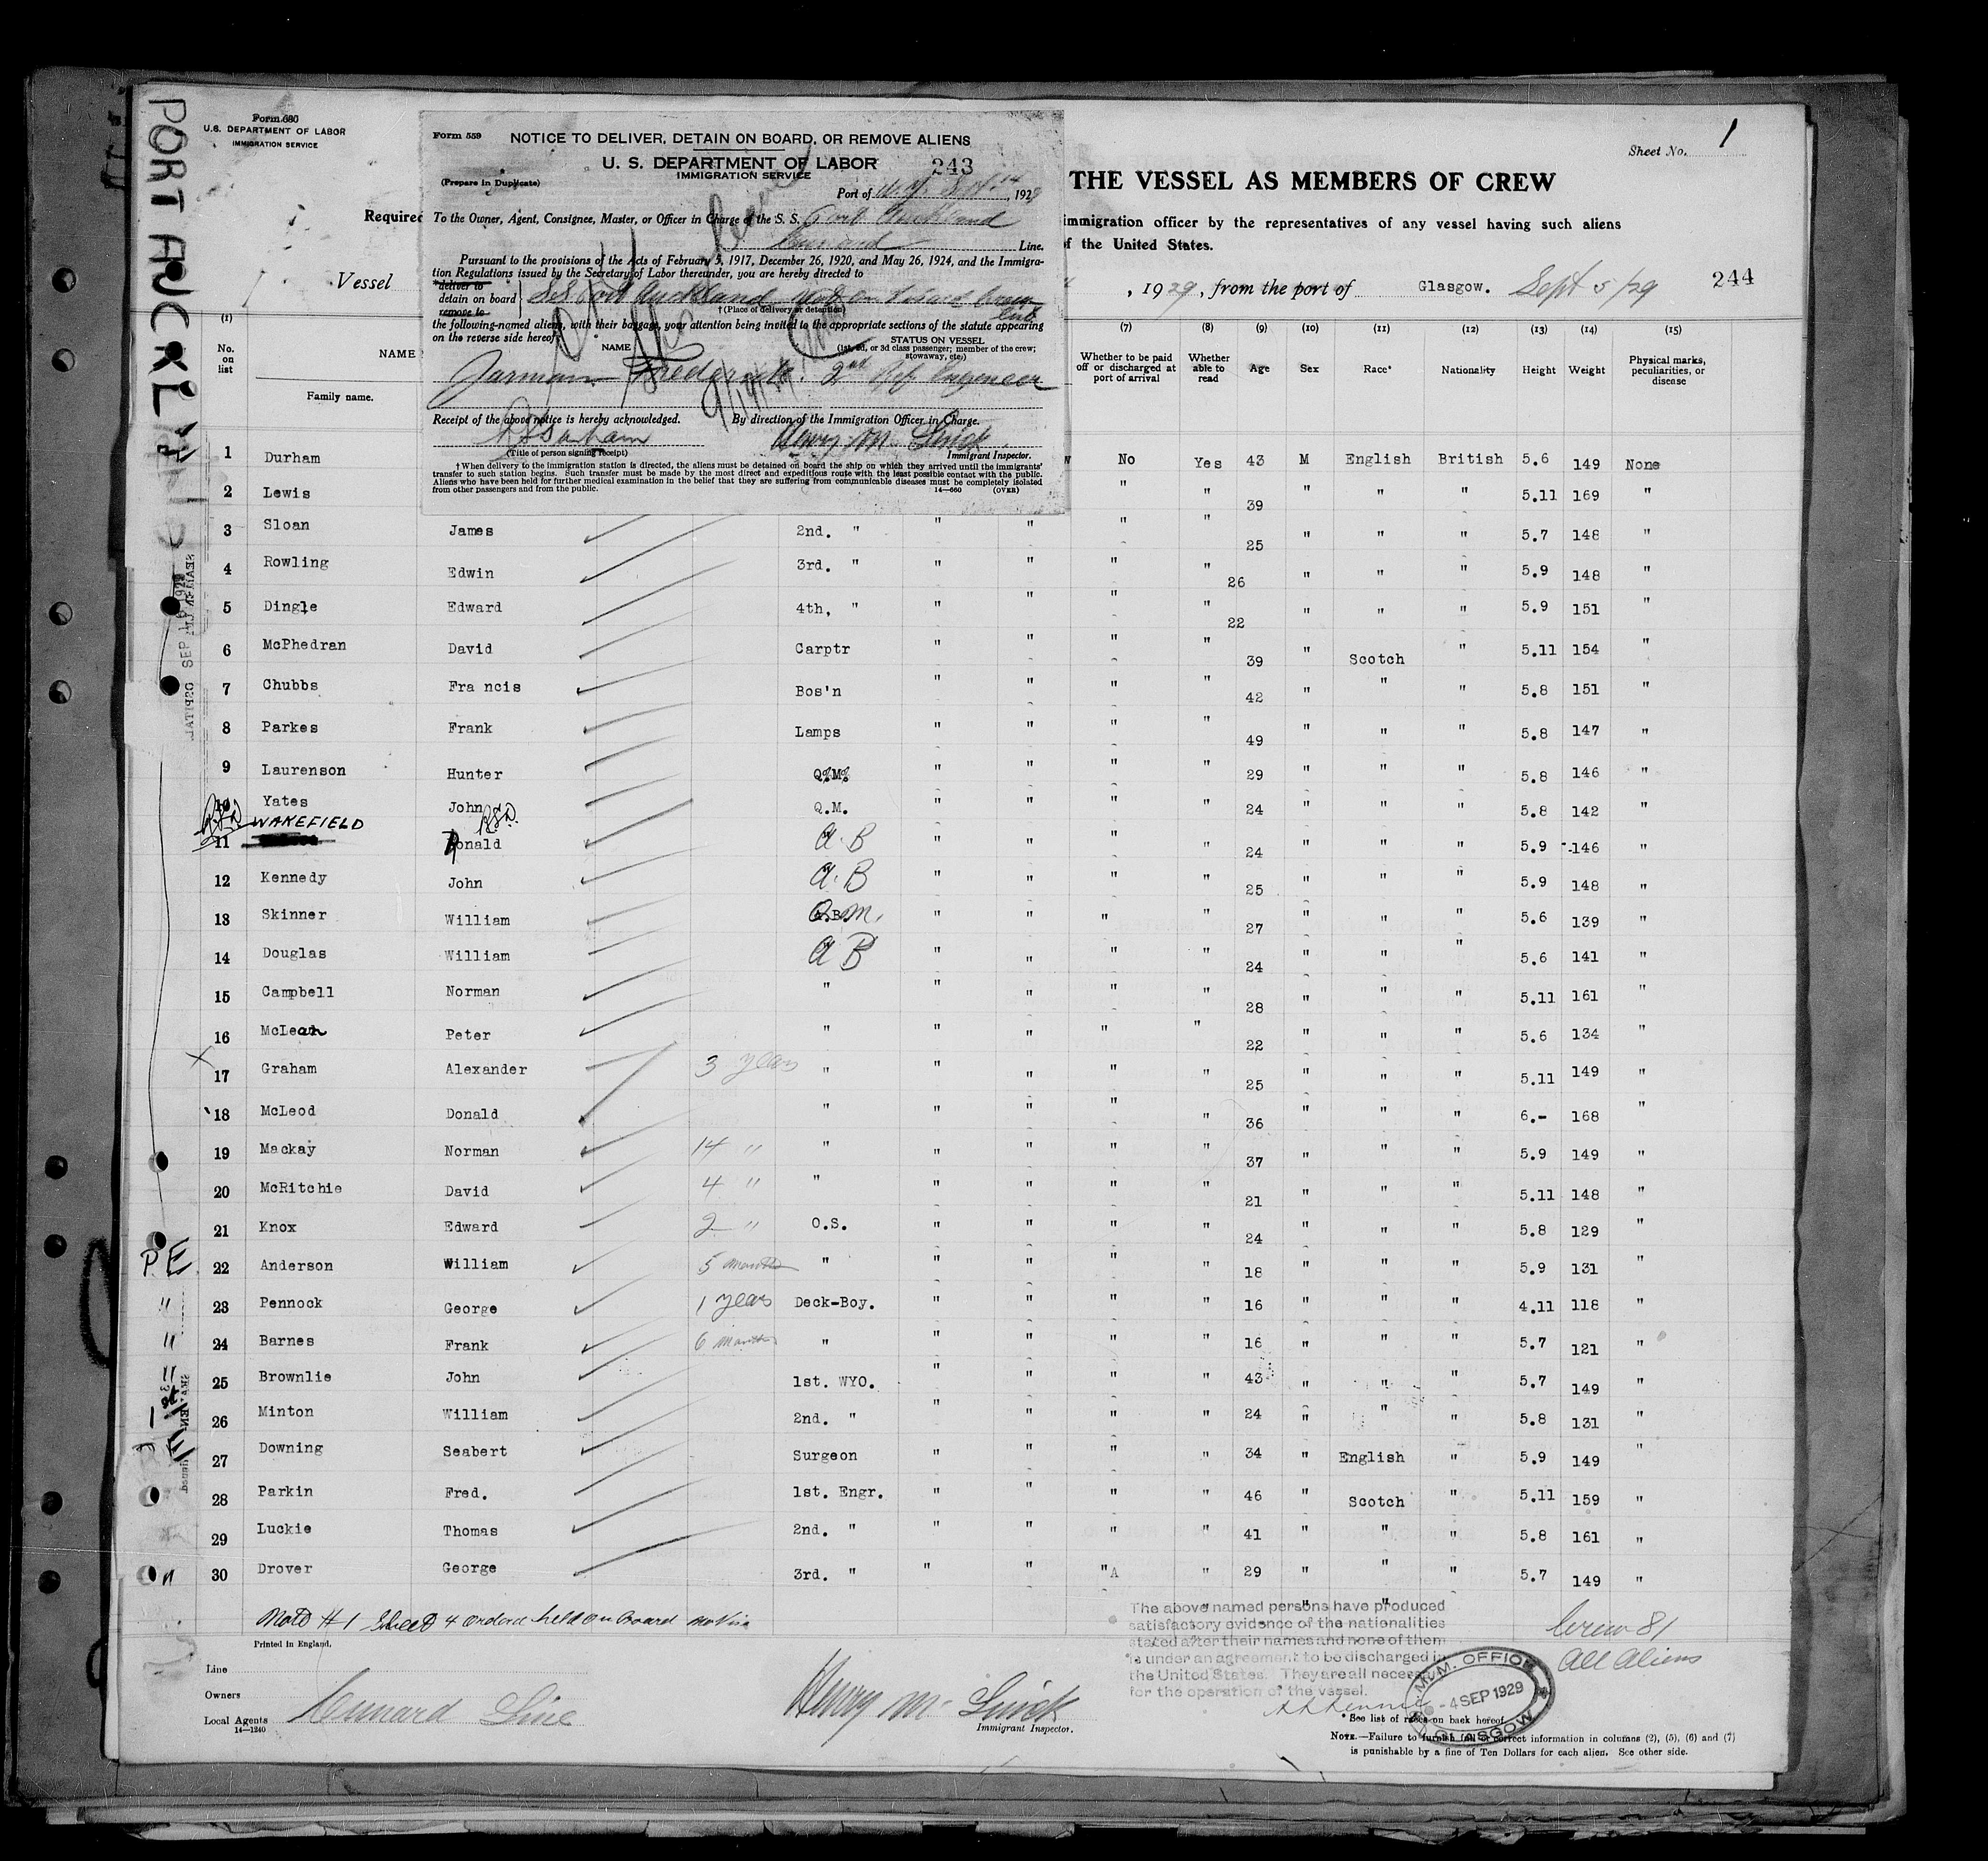 PORT AUCKLAND
Form 680
U.S. DEPARTMENT OF LABOR
IMMIGRATION SERVICE
Required
Vessel
Form 559
NOTICE TO DELIVER, DETAIN ON BOARD, OR REMOVE ALIENS
U. S. DEPARTMENT OF LABOR 243
IMMIGRATION SERVICE
(Prepare in Duplicate)
Port of N.Y. Sept 14, 1929
To the Owner, Agent, Consignee, Master, or Officer in Charge of the S. S. Port Auckland
Cunard Line.
Pursuant to the provisions of the Acts of February 5, 1917, December 26, 1920, and May 26, 1924, and the Immigra-
tion Regulations issued by the Secretary of Labor thereunder, you are hereby directed to
deliver to
detain on board SS Port Auckland
remove to
†(Place of delivery or detention)
the following-named aliens, with their baggage, your attention being invited to the appropriate sections of the statute appearing
on the reverse side hereof.
NAME STATUS ON VESSEL
(1st, 2d, or 3d class passenger; member of the crew;
stowaway, etc.)
Jarman Frederick. 2nd Ref Engineer
Receipt of the above notice is hereby acknowledged. By direction of the Immigration Officer in Charge.
Henry M.
(Title of person signing receipt) Immigrant Inspector.
† When delivery to the immigration station is directed, the aliens must be detained on board the ship on which they arrived until the immigrants'
transfer to such station begins. Such transfer must be made by the most direct and expeditious route with the least possible contact with the public.
Aliens who have been held for further medical examination in the belief that they are suffering from communicable diseases must be completely isolated
from other passengers and from the public. 14—660 (OVER)
Sheet No. 1
THE VESSEL AS MEMBERS OF CREW
immigration officer by the representatives of any vessel having such aliens
of the United States.
, 1929, from the port of Glasgow. Sept 5/29 244
(1) (7) (8) (9) (10) (11) (12) (13) (14) (15)
No. on list NAME Family name. Whether to be paid off or discharged at port of arrival Whether able to read Age Sex Race* Nationality Height Weight Physical marks, peculiarities, or disease
1 Durham No Yes 43 M English British 5.6 149 None
2 Lewis " " 39 " " " 5.11 169 "
3 Sloan James 2nd. " " " " " 25 " " " 5.7 148 "
4 Rowling Edwin 3rd. " " " " " 26 " " " 5.9 148 "
5 Dingle Edward 4th, " " " " " 22 " " " 5.9 151 "
6 McPhedran David Carptr " " " " 39 " Scotch " 5.11 154 "
7 Chubbs Francis Bos'n " " " " 42 " " " 5.8 151 "
8 Parkes Frank Lamps " " " " 49 " " " 5.8 147 "
9 Laurenson Hunter Q.M. " " " " 29 " " " 5.8 146 "
10 Yates John Q.M. " " " " 24 " " " 5.8 142 "
11 WAKEFIELD Ronald A.B " " " " 24 " " " 5.9 146 "
12 Kennedy John A.B " " " " 25 " " " 5.9 148 "
13 Skinner William Q.M. " " " " 27 " " " 5.6 139 "
14 Douglas William A B " " " " 24 " " " 5.6 141 "
15 Campbell Norman " " " " " 28 " " " 5.11 161 "
16 McLean Peter " " " " " 22 " " " 5.6 134 "
17 Graham Alexander 3 years " " " " " 25 " " " 5.11 149 "
18 McLeod Donald " " " " " 36 " " " 6.- 168 "
19 Mackay Norman 14 " " " " " " 37 " " " 5.9 149 "
20 McRitchie David 4 " " " " " " 21 " " " 5.11 148 "
21 Knox Edward 2 " O.S. " " " " 24 " " " 5.8 129 "
P.E 22 Anderson William 5 months " " " " " 18 " " " 5.9 131 "
" 23 Pennock George 1 years Deck-Boy. " " " " 16 " " " 4.11 118 "
" 24 Barnes Frank 6 months " " " " " 16 " " " 5.7 121 "
" 25 Brownlie John 1st. WYO. " " " " 43 " " " 5.7 149 "
26 Minton William 2nd. " " " " " 24 " " " 5.8 131 "
27 Downing Seabert Surgeon " " " " 34 " English " 5.9 149 "
28 Parkin Fred. 1st. Engr. " " " " 46 " Scotch " 5.11 159 "
29 Luckie Thomas 2nd. " " " " " 41 " " " 5.8 161 "
30 Drover George 3rd. " " " " " 29 " " " 5.7 149 "
Note #1 Sheet 4 ordered held on board no visa
Printed in England.
The above named persons have produced
satisfactory evidence of the nationalities
stated after their names and none of them
is under an agreement to be discharged in
the United States. They are all necessary
for the operation of the vessel.
Crew 81
All Aliens
IMM. OFFICE
-4 SEP 1929
GLASGOW
Line
Owners
Local Agents Cunard Line
14—1240
Henry M.
Immigrant Inspector.
*See list of races on back hereof.
NOTE.—Failure to furnish full or correct information in columns (2), (5), (6) and (7)
is punishable by a fine of Ten Dollars for each alien. See other side.